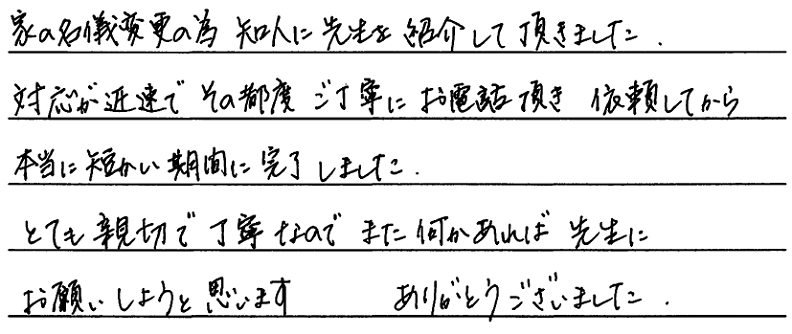 家の名儀変更の為 知人に 先生を 紹介して頂きました.
対応が迅速で その都度 ご丁寧に お電話頂き 依頼してから
本当に短かい期間に完了しました.
とても 親切で 丁寧なので また何かあれば 先生に
お願いしようと思います ありがとうございました.